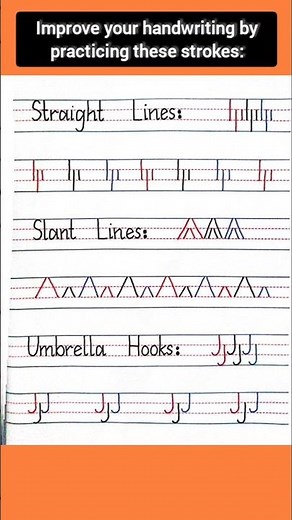 Improve your handwriting by
practicing these strokes:
Straight Lines:
Slant Lines:
Umbrella Hooks: